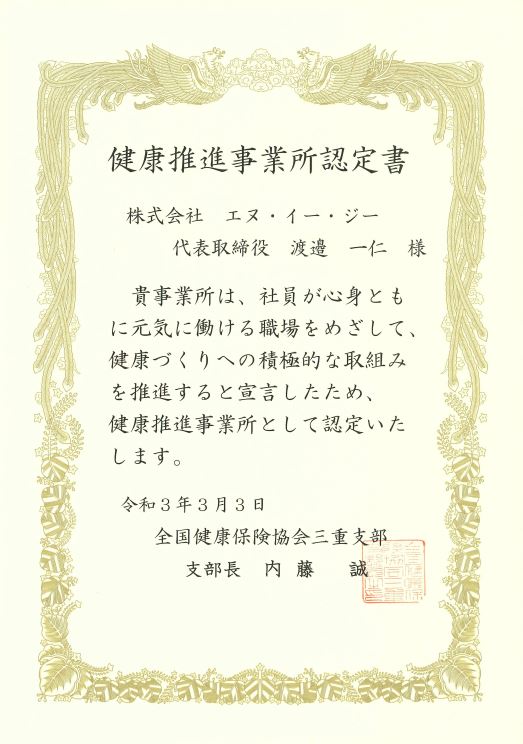 健康推進事業所認定書
株式会社　エヌ・イー・ジー
代表取締役　渡邉　一仁　様
貴事業所は、社員が心身とも
に元気に働ける職場をめざして、
健康づくりへの積極的な取組み
を推進すると宣言したため、
健康推進事業所として認定いた
します。
令和３年３月３日
全国健康保険協会三重支部
支部長　内　藤　　誠